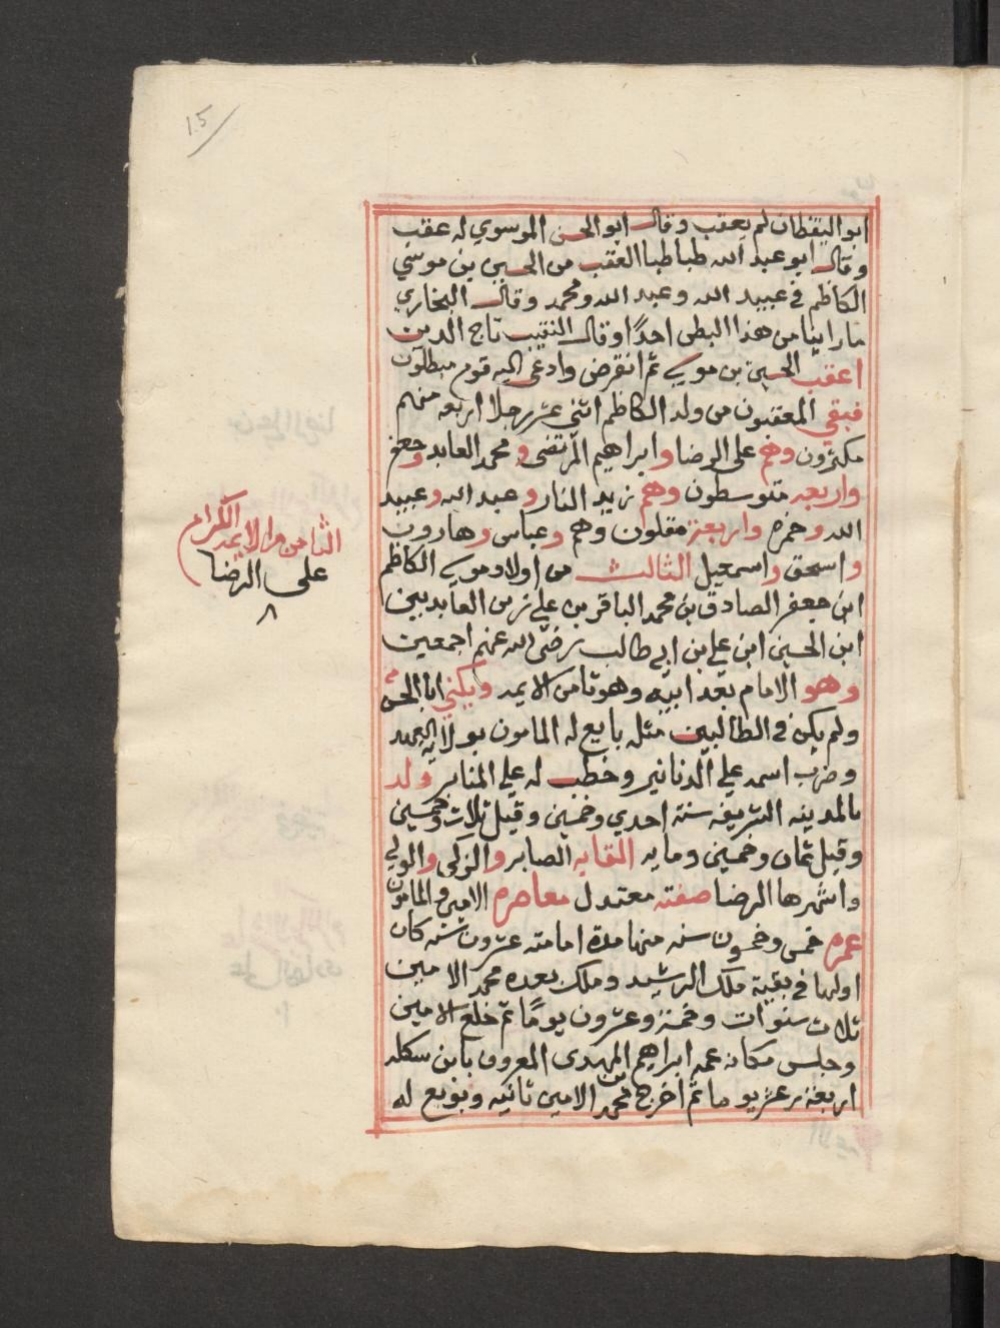 15
ابو اليقظان لم يعقب وقال ابو الحسن الموسوي له عقب
وقال ابو عبد الله طباطبا العقب من الحسين بن موسي
الكاظم في عبيد الله وعبد الله ومحمد وقال البخاري
ما راينا من هذا البطن احدًا وقال النقيب تاج الدين
اعقب الحسين بن موسي ثم انقرض وادعي اليه قوم مبطلون
فبقي المعقبون من ولد الكاظم اثني عشر رجلا اربعه منهم
مكثرون وهم علي الرضا وابراهيم المرتضى ومحمد العابد وجعفر
واربعه متوسطون وهم زيد النار وعبد الله وعبيد
الله وحمزه واربعة مقلون وهم وعباس وهارون
واسحق واسمعيل الثالث من اولاد موسي الكاظم
ابن جعفر الصادق بن محمد الباقر بن علي زين العابدين
ابن الحسين ابن علي بن ابي طالب رضي الله عنهم اجمعين
وهو الامام بعد ابيه وهو ثامن الايمه ويكني ابا الحسن
ولم يكن في الطالبين مثله بايع له المامون بولاية العهد
وضرب اسمه علي الدنانير وخطب له علي المنابر ولد
بالمدينه الشريفه سنة احدي وخمسين وقيل ثلاث وخمسين
وقيل ثمان وخمسين ومايه القابه الصابر والزكي والولي
واشهرها الرضا صفته معتدل معاصره الامين والمامون
عمره خمس وخمسون سنه منها مدة امامته عشرون سنه كان
اولها في بقية ملك الرشيد وملك بعده محمد الامين
ثلاث سنوات وخمسة وعشرون يومًا ثم خلع الامين
وجلس مكانه عمه ابراهيم المهدي المعروف بابن سكله
اربعة عشر يوما ثم اخرج محمد الامين ثانيه وبويع له
الثامن من الايمه الكرام
علي الرضا
٨